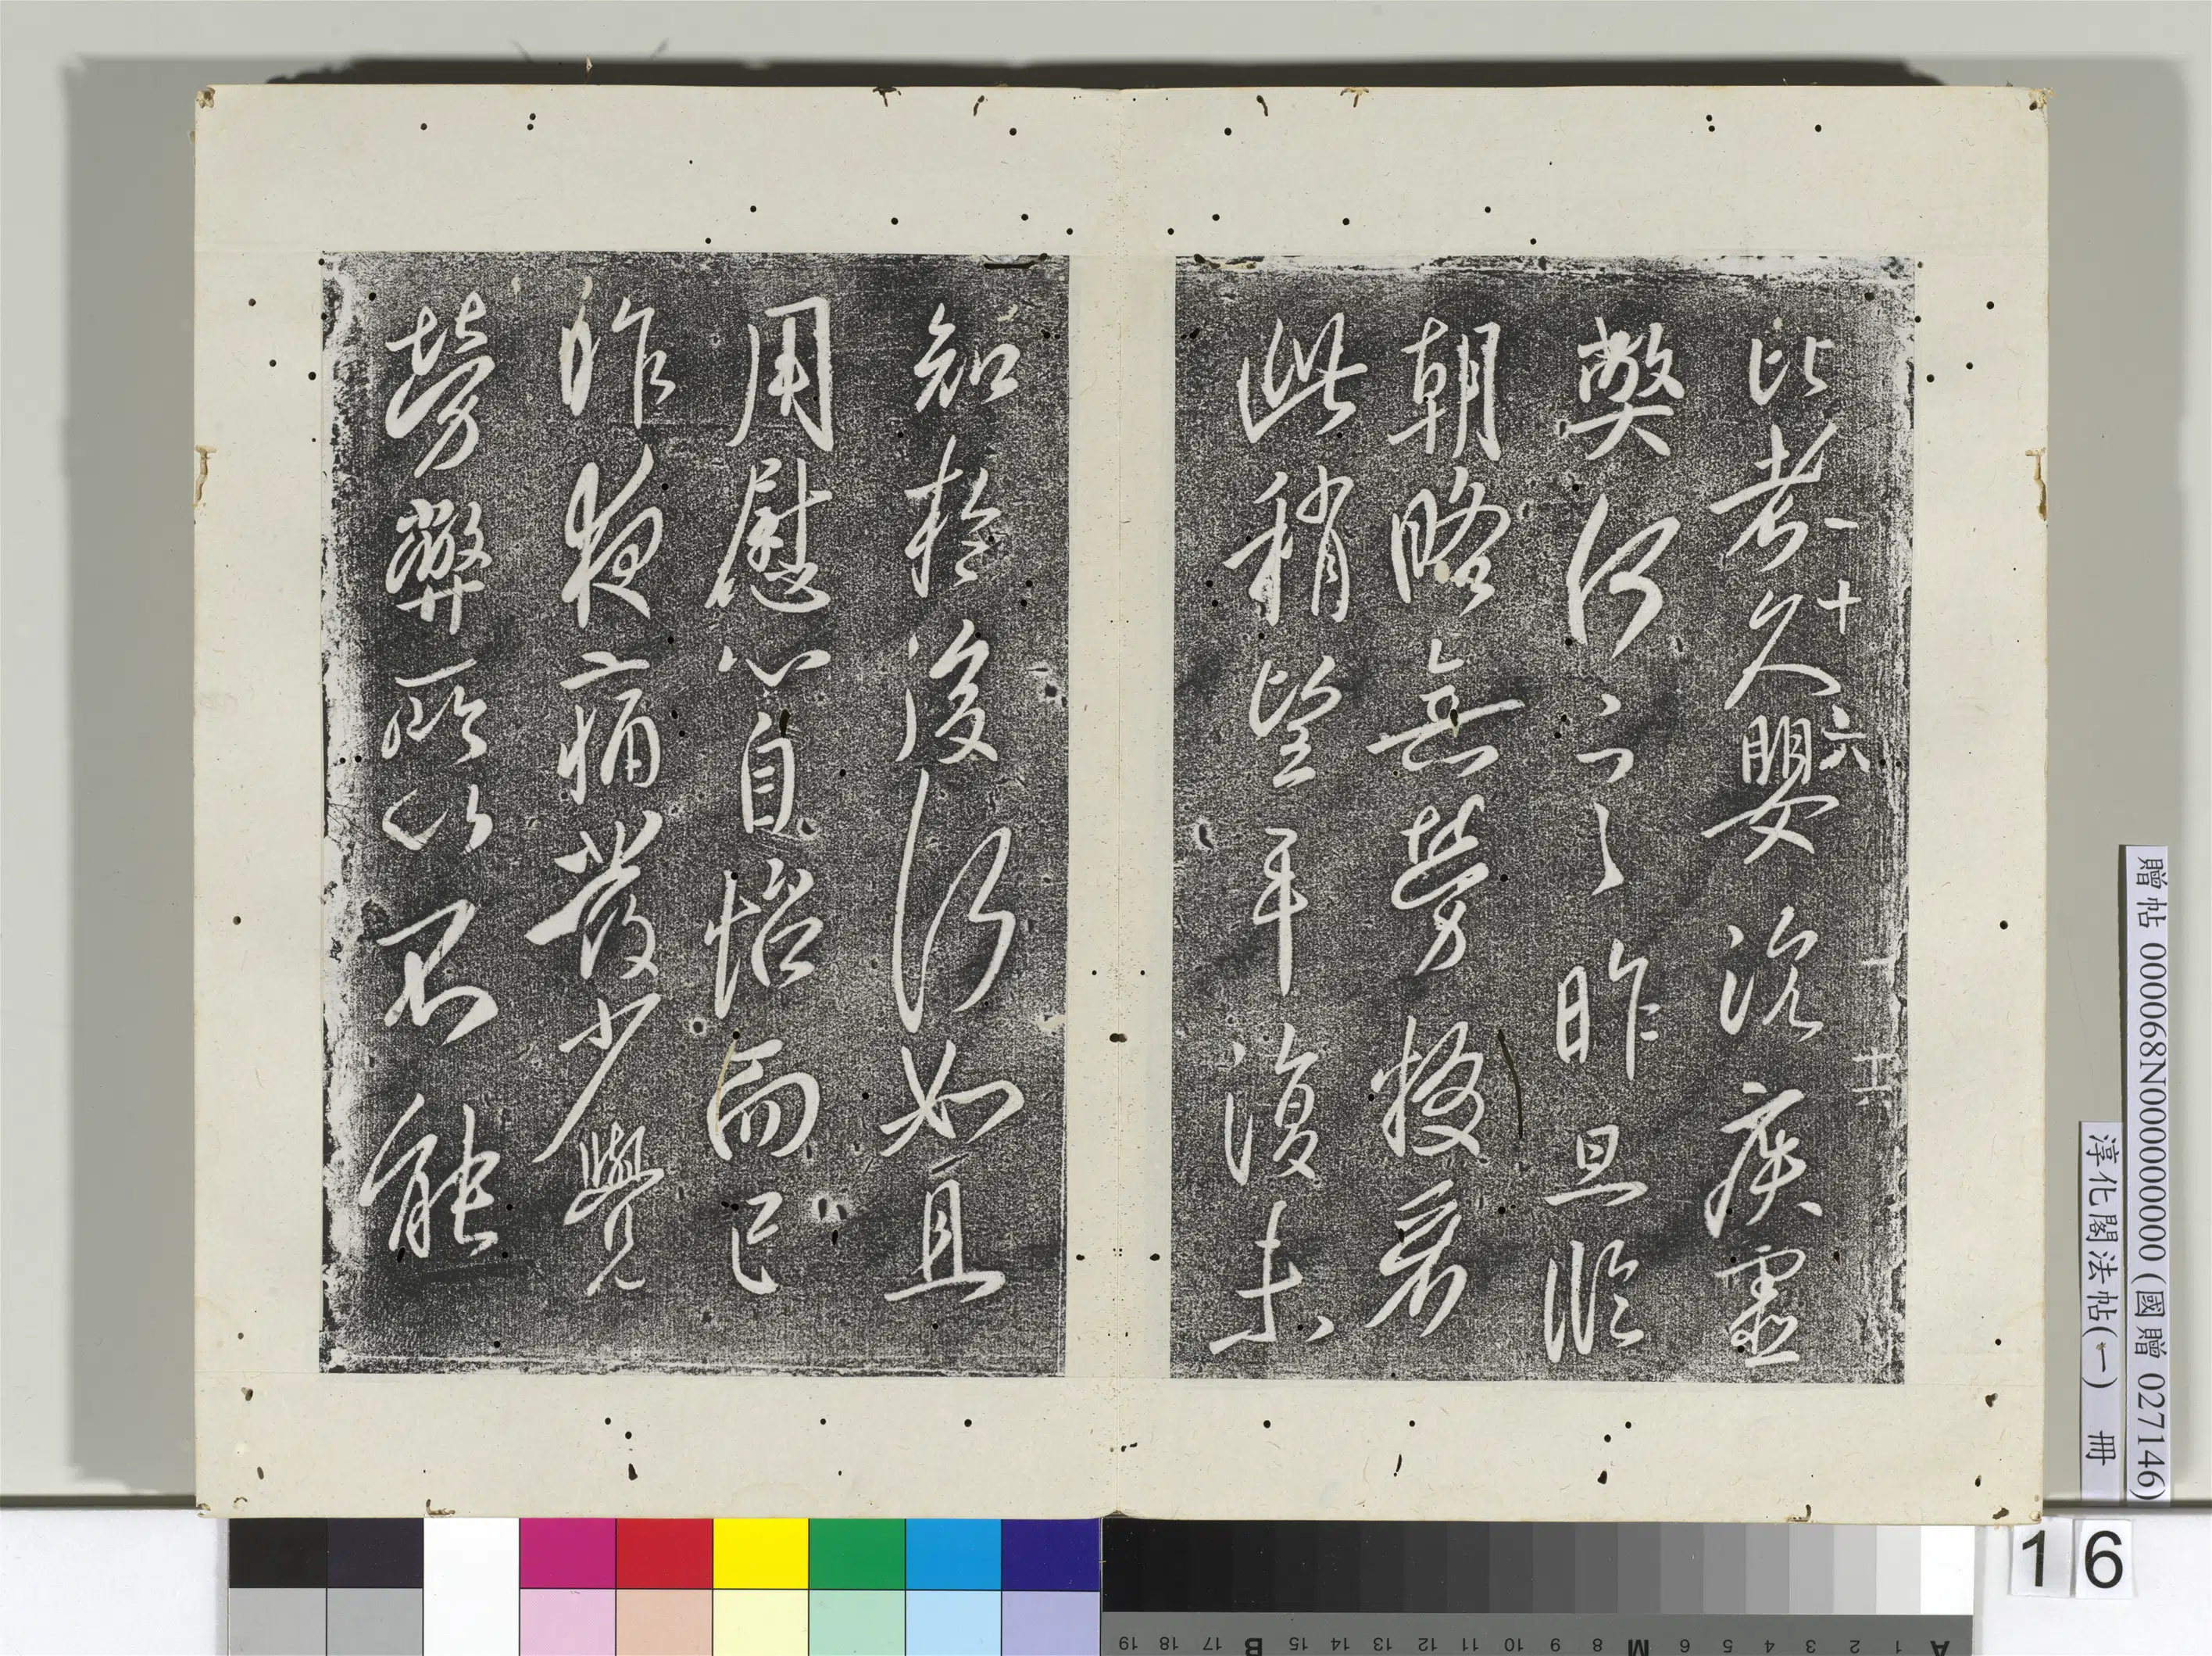 比者久嬰沉疾虛
一十六
十六
弊何言昨旦臨
朝略無勞看
此稍望平復未
知於後何如且
用慰心自怡而已
昨夜痛發少覺
勞弊所以不能
贈帖 000068N000000000 (國贈 027146)
淳化閣法帖(一) 冊
16
A 1 2 3 4 5 6 M 8 9 10 11 12 13 14 15 B 17 18 19